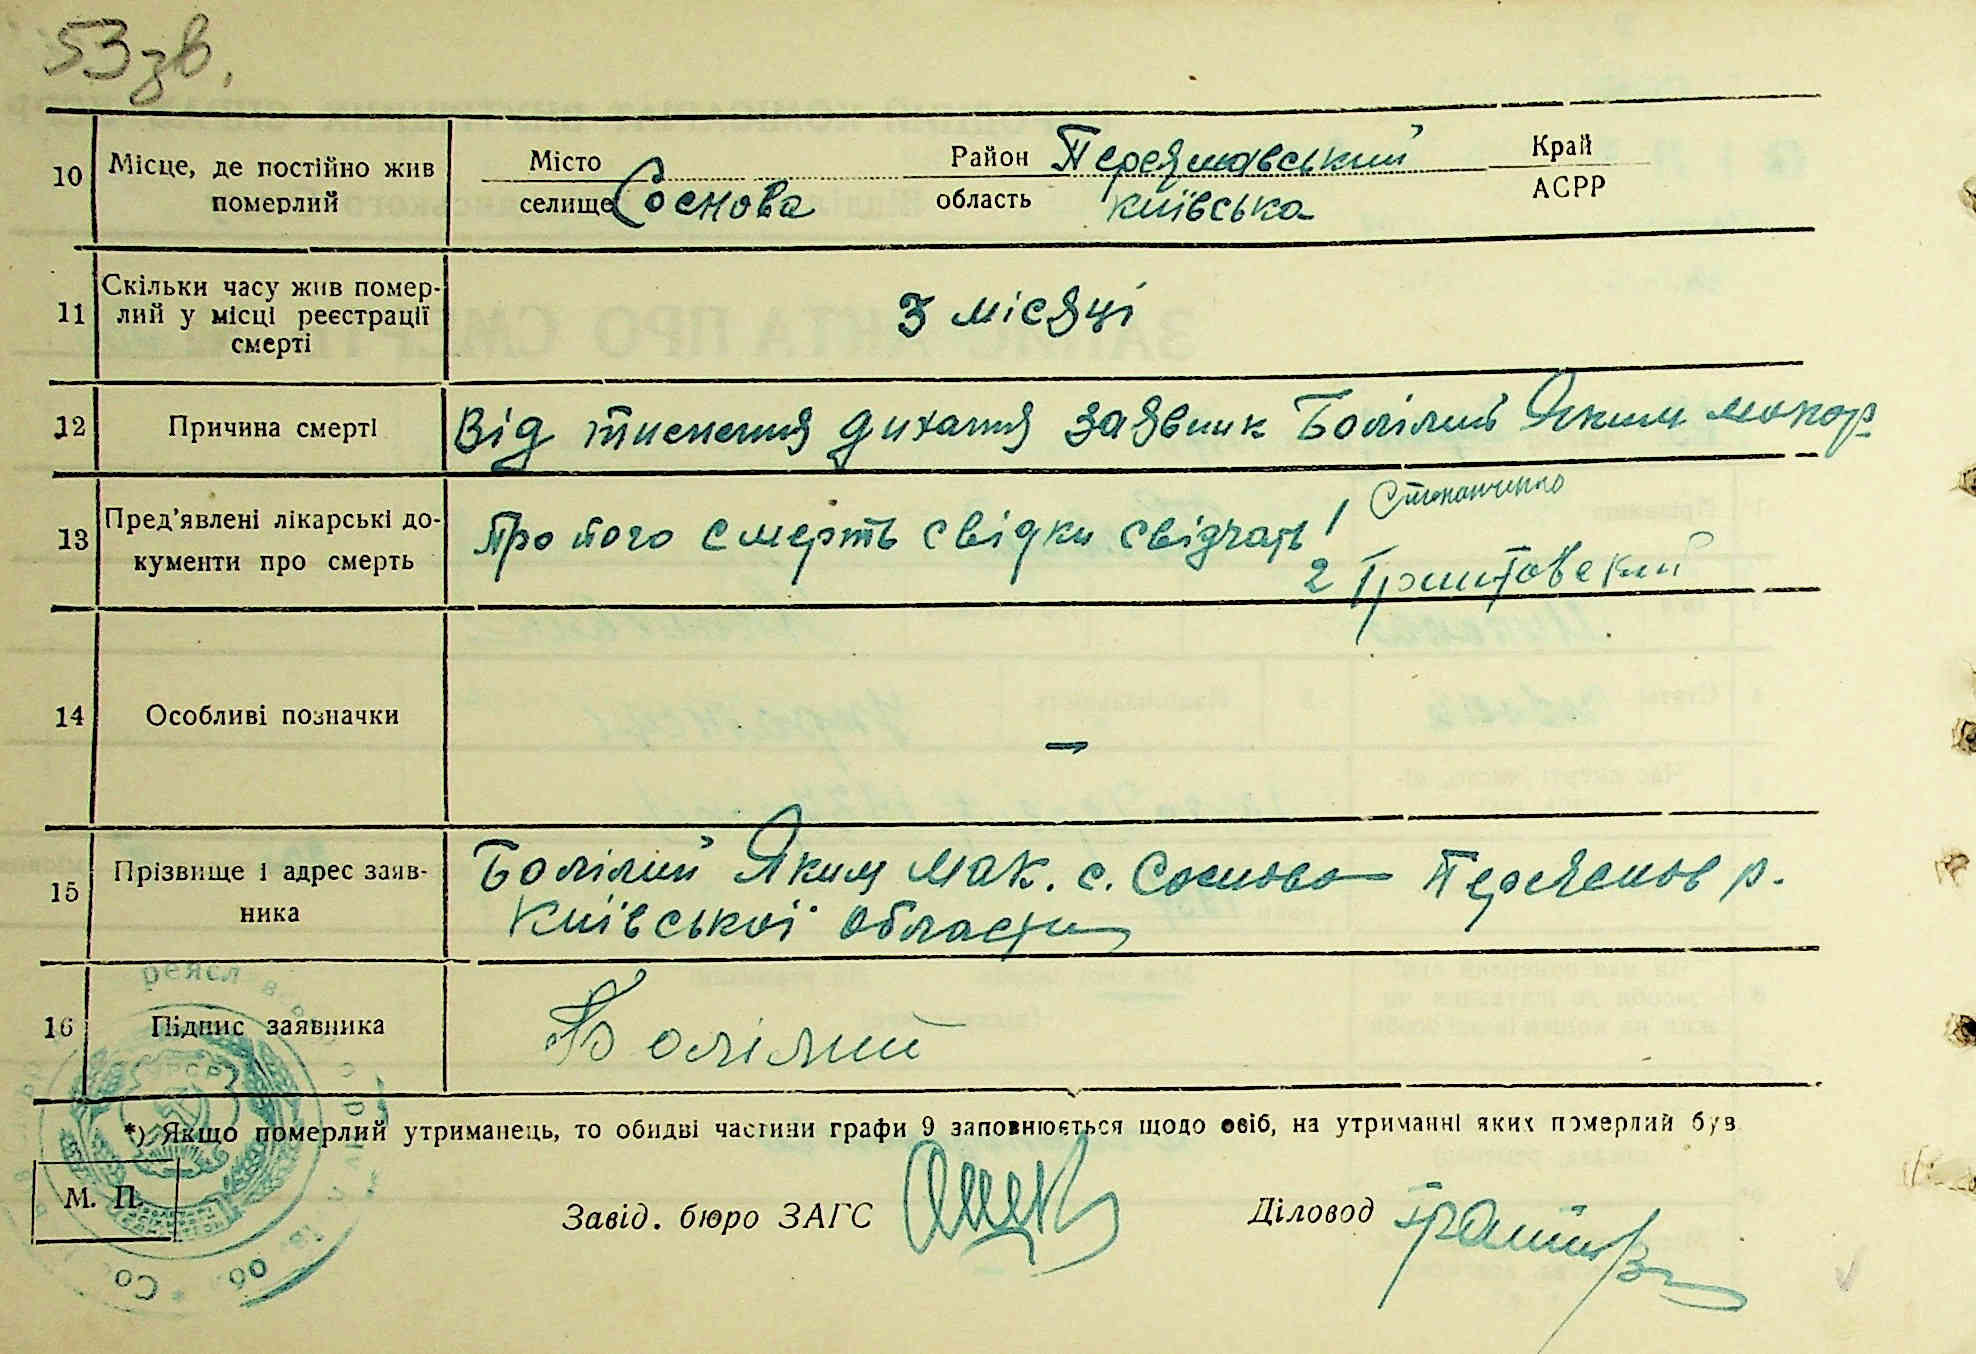 53 зв.
10 Місце, де постійно жив померлий
Місто
селище Соснова
Район Переяславський
область Київська
Край
АСРР
11 Скільки часу жив помер-
лий у місці реєстрації
смерті
3 місяці
12 Причина смерті
Від тиснення дихання заявник Болілий Яким Макар
13 Пред'явлені лікарські до-
кументи про смерть
Про його смерть свідки свідчать 1 Степанченко
2
14 Особливі позначки
—
15 Прізвище і адрес заяв-
ника
Болілий Яким Мак. с. Соснова Переяслов р.
Київської области
16 Підпис заявника
Болілий
*) Якщо померлий утриманець, то обидві частини графи 9 заповнюється щодо осіб, на утриманні яких померлий був
М. П.
Завід. бюро ЗАГС
Діловод